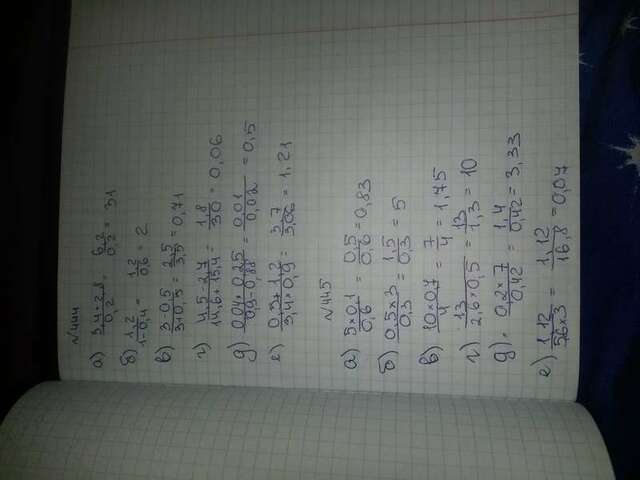 №444
а) 3,4+2,8/0,2 = 6,2/0,2 = 31
б) 1,2/1-0,4 = 1,2/0,6 = 2
в) 3-0,5/3+0,5 = 2,5/3,5 = 0,71
г) 4,5-2,7/14,6+15,4 = 1,8/30 = 0,06
д) 0,04·0,25/0,9-0,88 = 0,01/0,02 = 0,5
е) = 1,21
№445
а) 5×0,1/0,6 = 0,5/0,6 = 0,83
б) 0,5×3/0,3 = 1,5/0,3 = 5
в) 10×0,7/4 = 7/4 = 1,75
г) 13/2,6×0,5 = 13/1,3 = 10
д) 0,2×7/0,42 = 1,4/0,42 = 3,33
е) 1,12/56×3 = 1,12/16,8 = 0,07